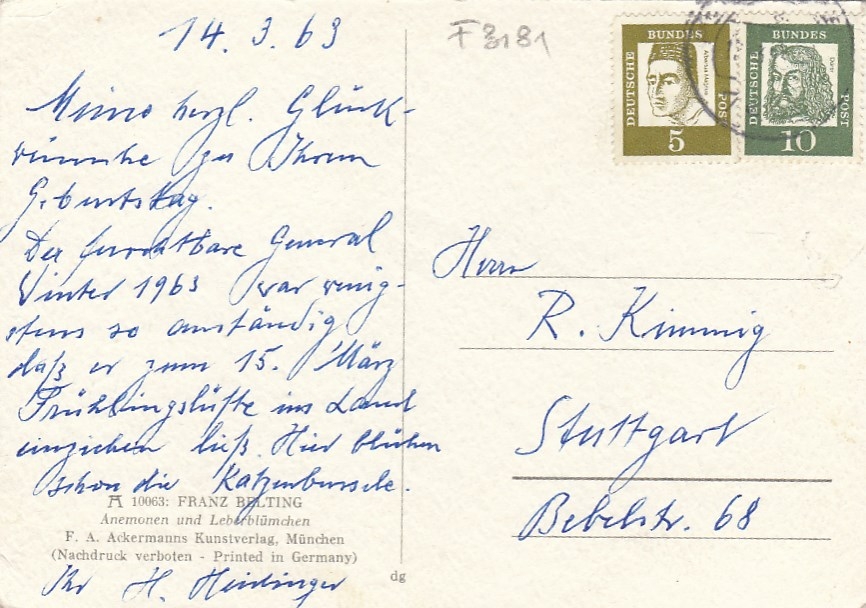 14. 3. 63
F 3181
Meine herzl. Glück-
wünsche zu Ihrem
Geburtstag.
Der furchtbare General
Winter 1963 war wenig-
stens so anständig
daß er zum 15. März
Frühlingslüfte ins Land
einziehen ließ. Hier blühen
schon die Katzenbussele.
10063: FRANZ BELTING
Anemonen und Leberblümchen
F. A. Ackermanns Kunstverlag, München
(Nachdruck verboten - Printed in Germany)
Ihr H. Heidinger
dg
DEUTSCHE BUNDES POST
5
DEUTSCHE BUNDES POST
Dürer
10
Herrn
R. Kimmig
Stuttgart
Bebelstr. 68